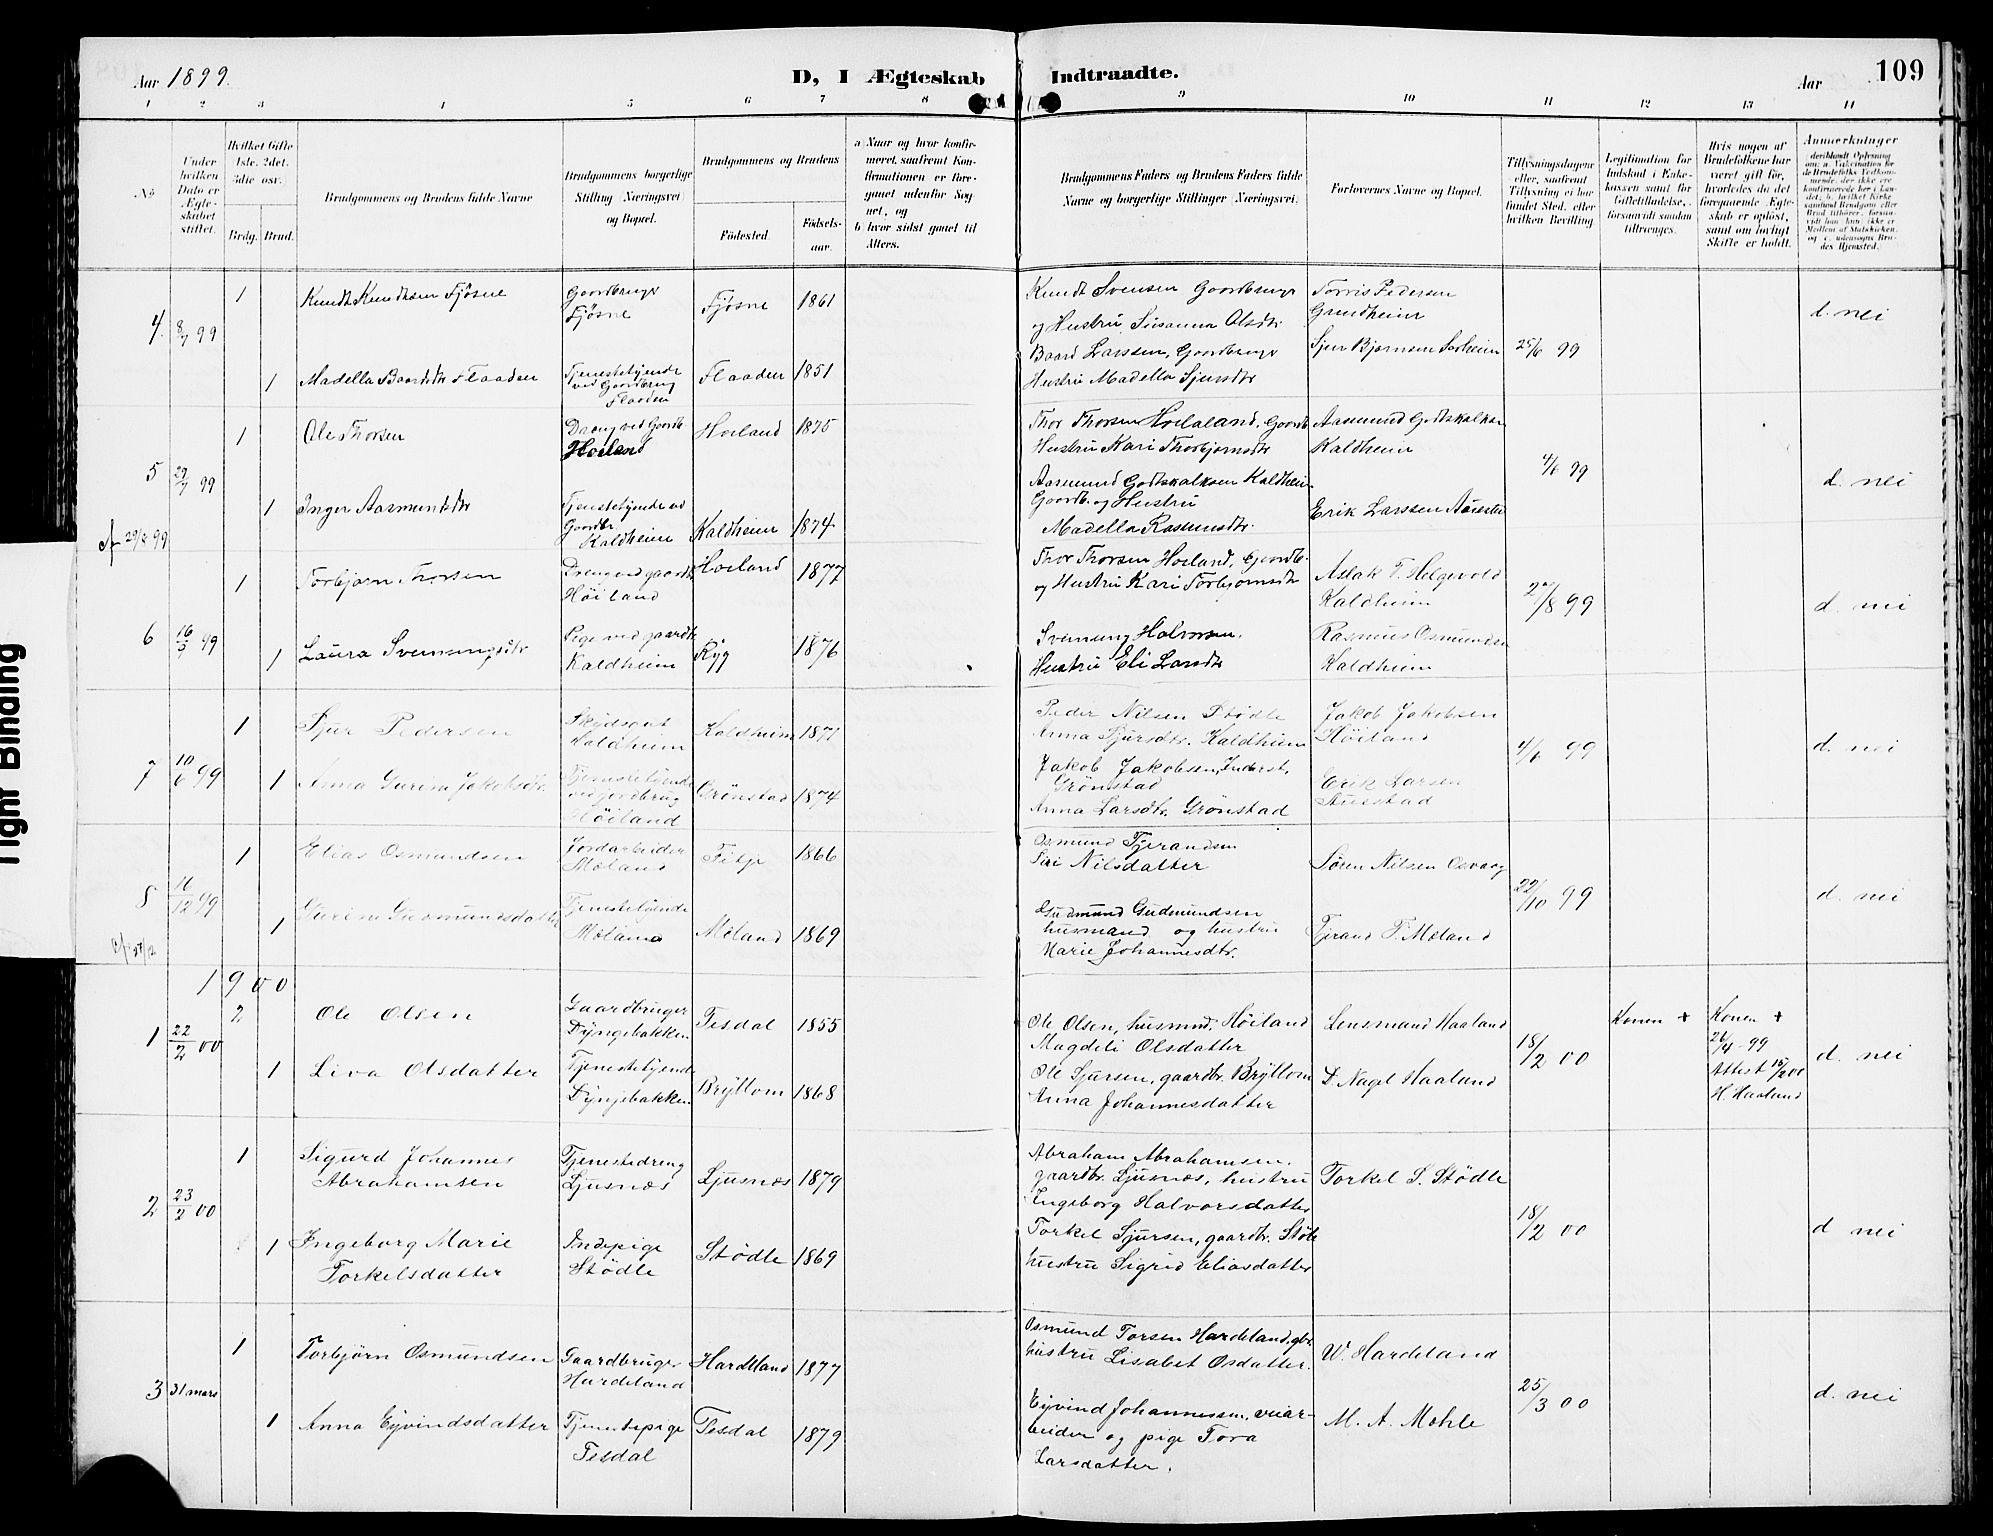 Aar 1899.
D, I Ægteskab Indtraadte.
Aar
109
1 2 3 4 5 6 7 8 9 10 11 12 13 14
No
Under hvilken Dato er Ægteskabet stiftet.
Hvilket Gifte 1ste. 2det. 3die osv.
Brdg. Brud.
Brudgommens og Brudens fulde Navne
Brudgommens borgerlige Stilling (Næringsvei) og Bopæl.
Brudgommens og Brudens
Fødested.
Fødselsaar.
a Naar og hvor konfirmeret, saafremt Konfirmationen er foregaaet udenfor Sognet, og
b hvor sidst gaaet til Alters.
Brudgommens Faders og Brudens Faders fulde Navne og borgerlige Stillinger (Næringsvei).
Forlovernes Navne og Bopæl.
Tillysningsdagene eller, saafremt Tillysning ei har fundet Sted, efter hvilken Bevilling
Legitimation for Indskud i Enkekassen samt for Giftetilladelse, forsaavidt saadan tiltrænges.
Hvis nogen af Brudefolkene har været gift før, hvorledes da det foregaaende Ægteskab er opløst, samt om lovligt Skifte er holdt.
Anmærkninger
4. 8/7 99
1 Knudt Knudtsen Fjøsne
Goordbruger
Fjøsne
Fjøsne 1861
Knudt Svensen Goordbruger
og Hustru Susanna Olsdtr
Torris Pedersen
Grindheim
1 Madella Baardsdtr Flaaden
Tjenestetjende
ved Goordbrug
Flaaden
Flaaden 1851
Baard Larssen, Goordbruger
Hustru Madella Sjursdtr
Sjur Bjørnsen Sørheim
25/6 99
d. nei
5 29/7 99
1 Ole Thorsen
Dreng ved Goordb
Høiland
Hoiland 1875
Thor Thorsen Hoilaland, Goordb
Hustru Kari Thorbjørnsdtr
Aasmund Godtskalksen
Kaldheim
1 Inger Aasmundsdtr
Tjenestetjende ved
Goordbr
Kaldheim
Kaldheim 1874
Aasmund Godtskalksen Kaldheim
Goordb. og Hustru
Madella Rasmusdtr.
Erik Larssen Auestad
4/6 99
d. nei
29/8 99
6 16/9 99
1 Torbjørn Thorsen
Dreng ved gaardb
Høiland
Hoiland 1877
Thor Thorsen Hoiland, Gjordb.
og Hustru Kari Torbjørnsdtr
Aslak T. Helgevold
Kaldheim
1 Laura Svenungsdtr
Pige ved gaardb
Kaldheim
Ryg 1876
Svenung Halvorsen.
Hustru Eli Larsdtr
Rasmus Osmundsen
Kaldheim
27/8 99
d. nei
7 10/6 99
1 Sjur Pedersen
Skydsgut
Kaldheim
Kaldheim 1871
Peder Nilsen Stødle
Anna Sjursdtr. Kaldheim
Jakob Jakobsen
Høiland
1 Anna Gurina Jakobsdtr.
Tjenestetjende
ved jordbrug
Høiland
Grönstad 1874
Jakob Jakobsen, Inderst,
Grönstad
Anna Larsdtr. Grönstad
Erik Larsen
4/6 99
d. nei
8 16/12 99
1 Elias Osmundsen
Jordarbeider
Mæland
Fitje 1866
Osmund Tjerandsen
Siri Nilsdatter
Søren Nilsen Osvaag
1 Gurina Gudmundsdatter
Tjenestetjende
Mæland
Mæland 1869
Gudmund Gudmundsen
husmand og hustru
Marie Johannesdtr.
Tjerand T. Mæland
22/10 99
d. nei
27/12
1900
1 22/2 00
2 Ole Olsen
Gaardbruger
Dyngebakken
Tesdal 1855
Ole Olsen, husmnd. Høiland
Magdeli Olsdatter
Lensmand Haaland
1 Liva Olsdatter
Tjenestetjende
Dyngebakken
Bryllom 1868
Ole Sjursen, gaardbr. Bryllom
Anna Johannesdatter
D. Nagel Haaland
18/2 00
Konen +
Konen +
26/4-99
Attest 15/2 00
H. Haaland
d. nei
2 23/2 00
1 Sigurd Johannes
Abrahamsen
Tjenestedreng
Ljusnæs
Ljusnæs 1879
Abraham Abrahamsen,
gaardbr. Ljusnæs, hustru
Ingeborg Halvorsdatter
Torkel S. Stødle
1 Ingeborg Marie
Torkelsdatter
Indepige
Stødle
Stødle 1869
Torkel Sjursen, gaardbr. Stødle
hustru Sigrid Eliasdatter
18/2 00
d. nei
3 31 mars
1 Torbjørn Osmundsen
Gaardbruger
Hardeland
Hardeland 1877
Osmund Torsen Hardeland, gbr.
hustru Lisabet Osdatter.
W. Hardeland
1 Anna Eyvindsdatter
Tjenestepige
Tesdal
Tesdal 1879
Eyvind Johannessen, veiar-
beider og pige Tora
Larsdatter.
M. A. Mæhle
25/3 00
d. nei
Tight Binding